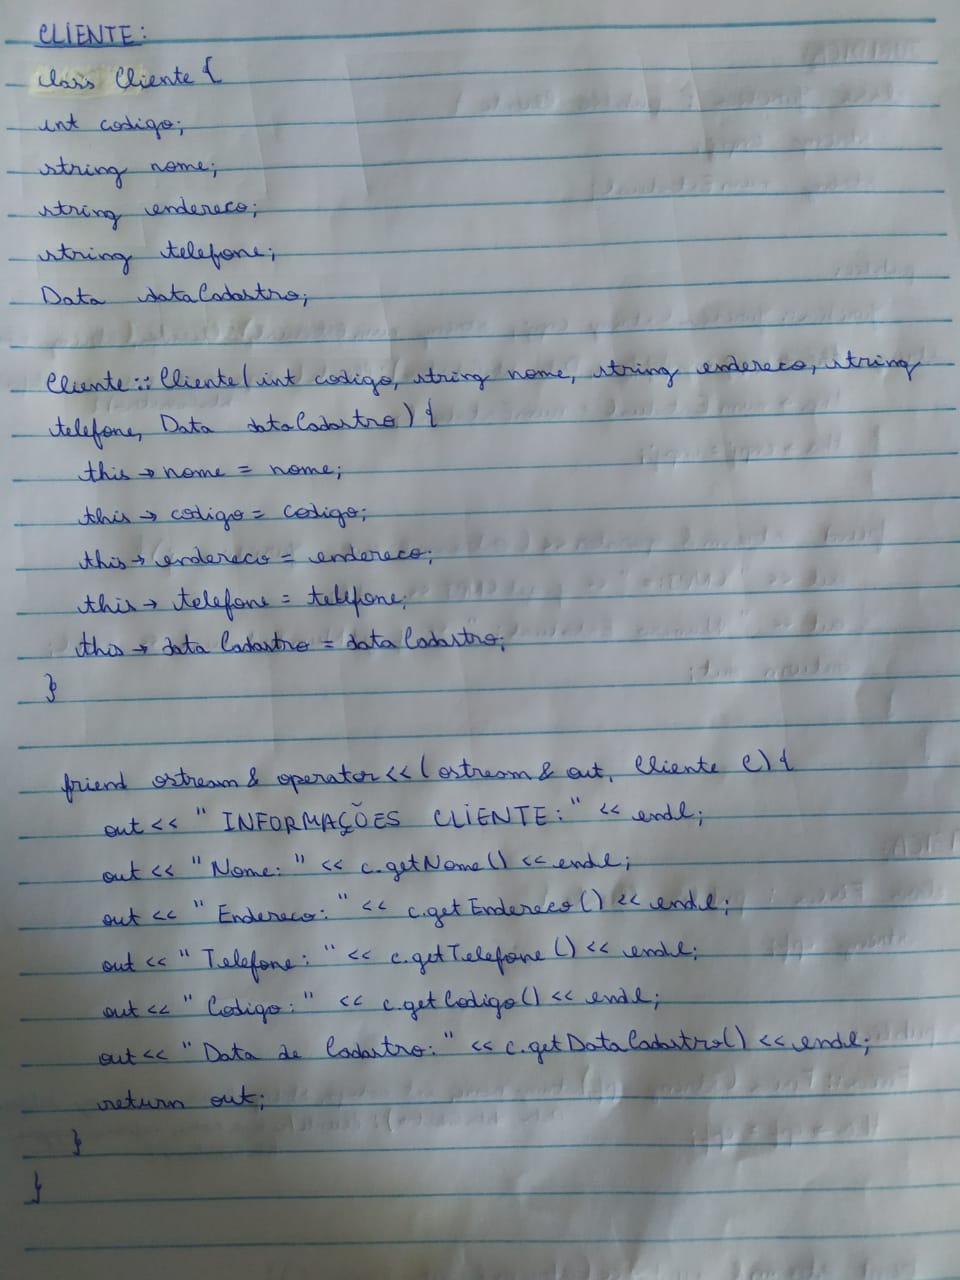 CLIENTE:
class Cliente {
int codigo;
string nome;
string endereco;
string telefone;
Data dataCadastro;
Cliente::Cliente(int codigo, string nome, string endereco, string
telefone, Data dataCadastro) {
this → nome = nome;
this → codigo = codigo;
this → endereco = endereco;
this → telefone = telefone;
this → dataCadastro = dataCadastro;
}
friend ostream & operator << (ostream & out, Cliente c) {
out << " INFORMAÇÕES CLIENTE: " << endl;
out << " Nome: " << c.getNome() << endl;
out << " Endereco: " << c.getEndereco() << endl;
out << " Telefone: " << c.getTelefone() << endl;
out << " Codigo: " << c.getCodigo() << endl;
out << " Data de Cadastro: " << c.getDataCadastro() << endl;
return out;
}
}